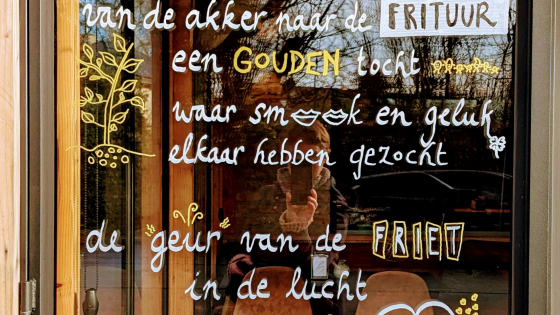 van de akker naar de FRITUUR
een GOUDEN tocht
waar smaak en geluk
elkaar hebben gezocht
de geur van de FRIET
in de lucht